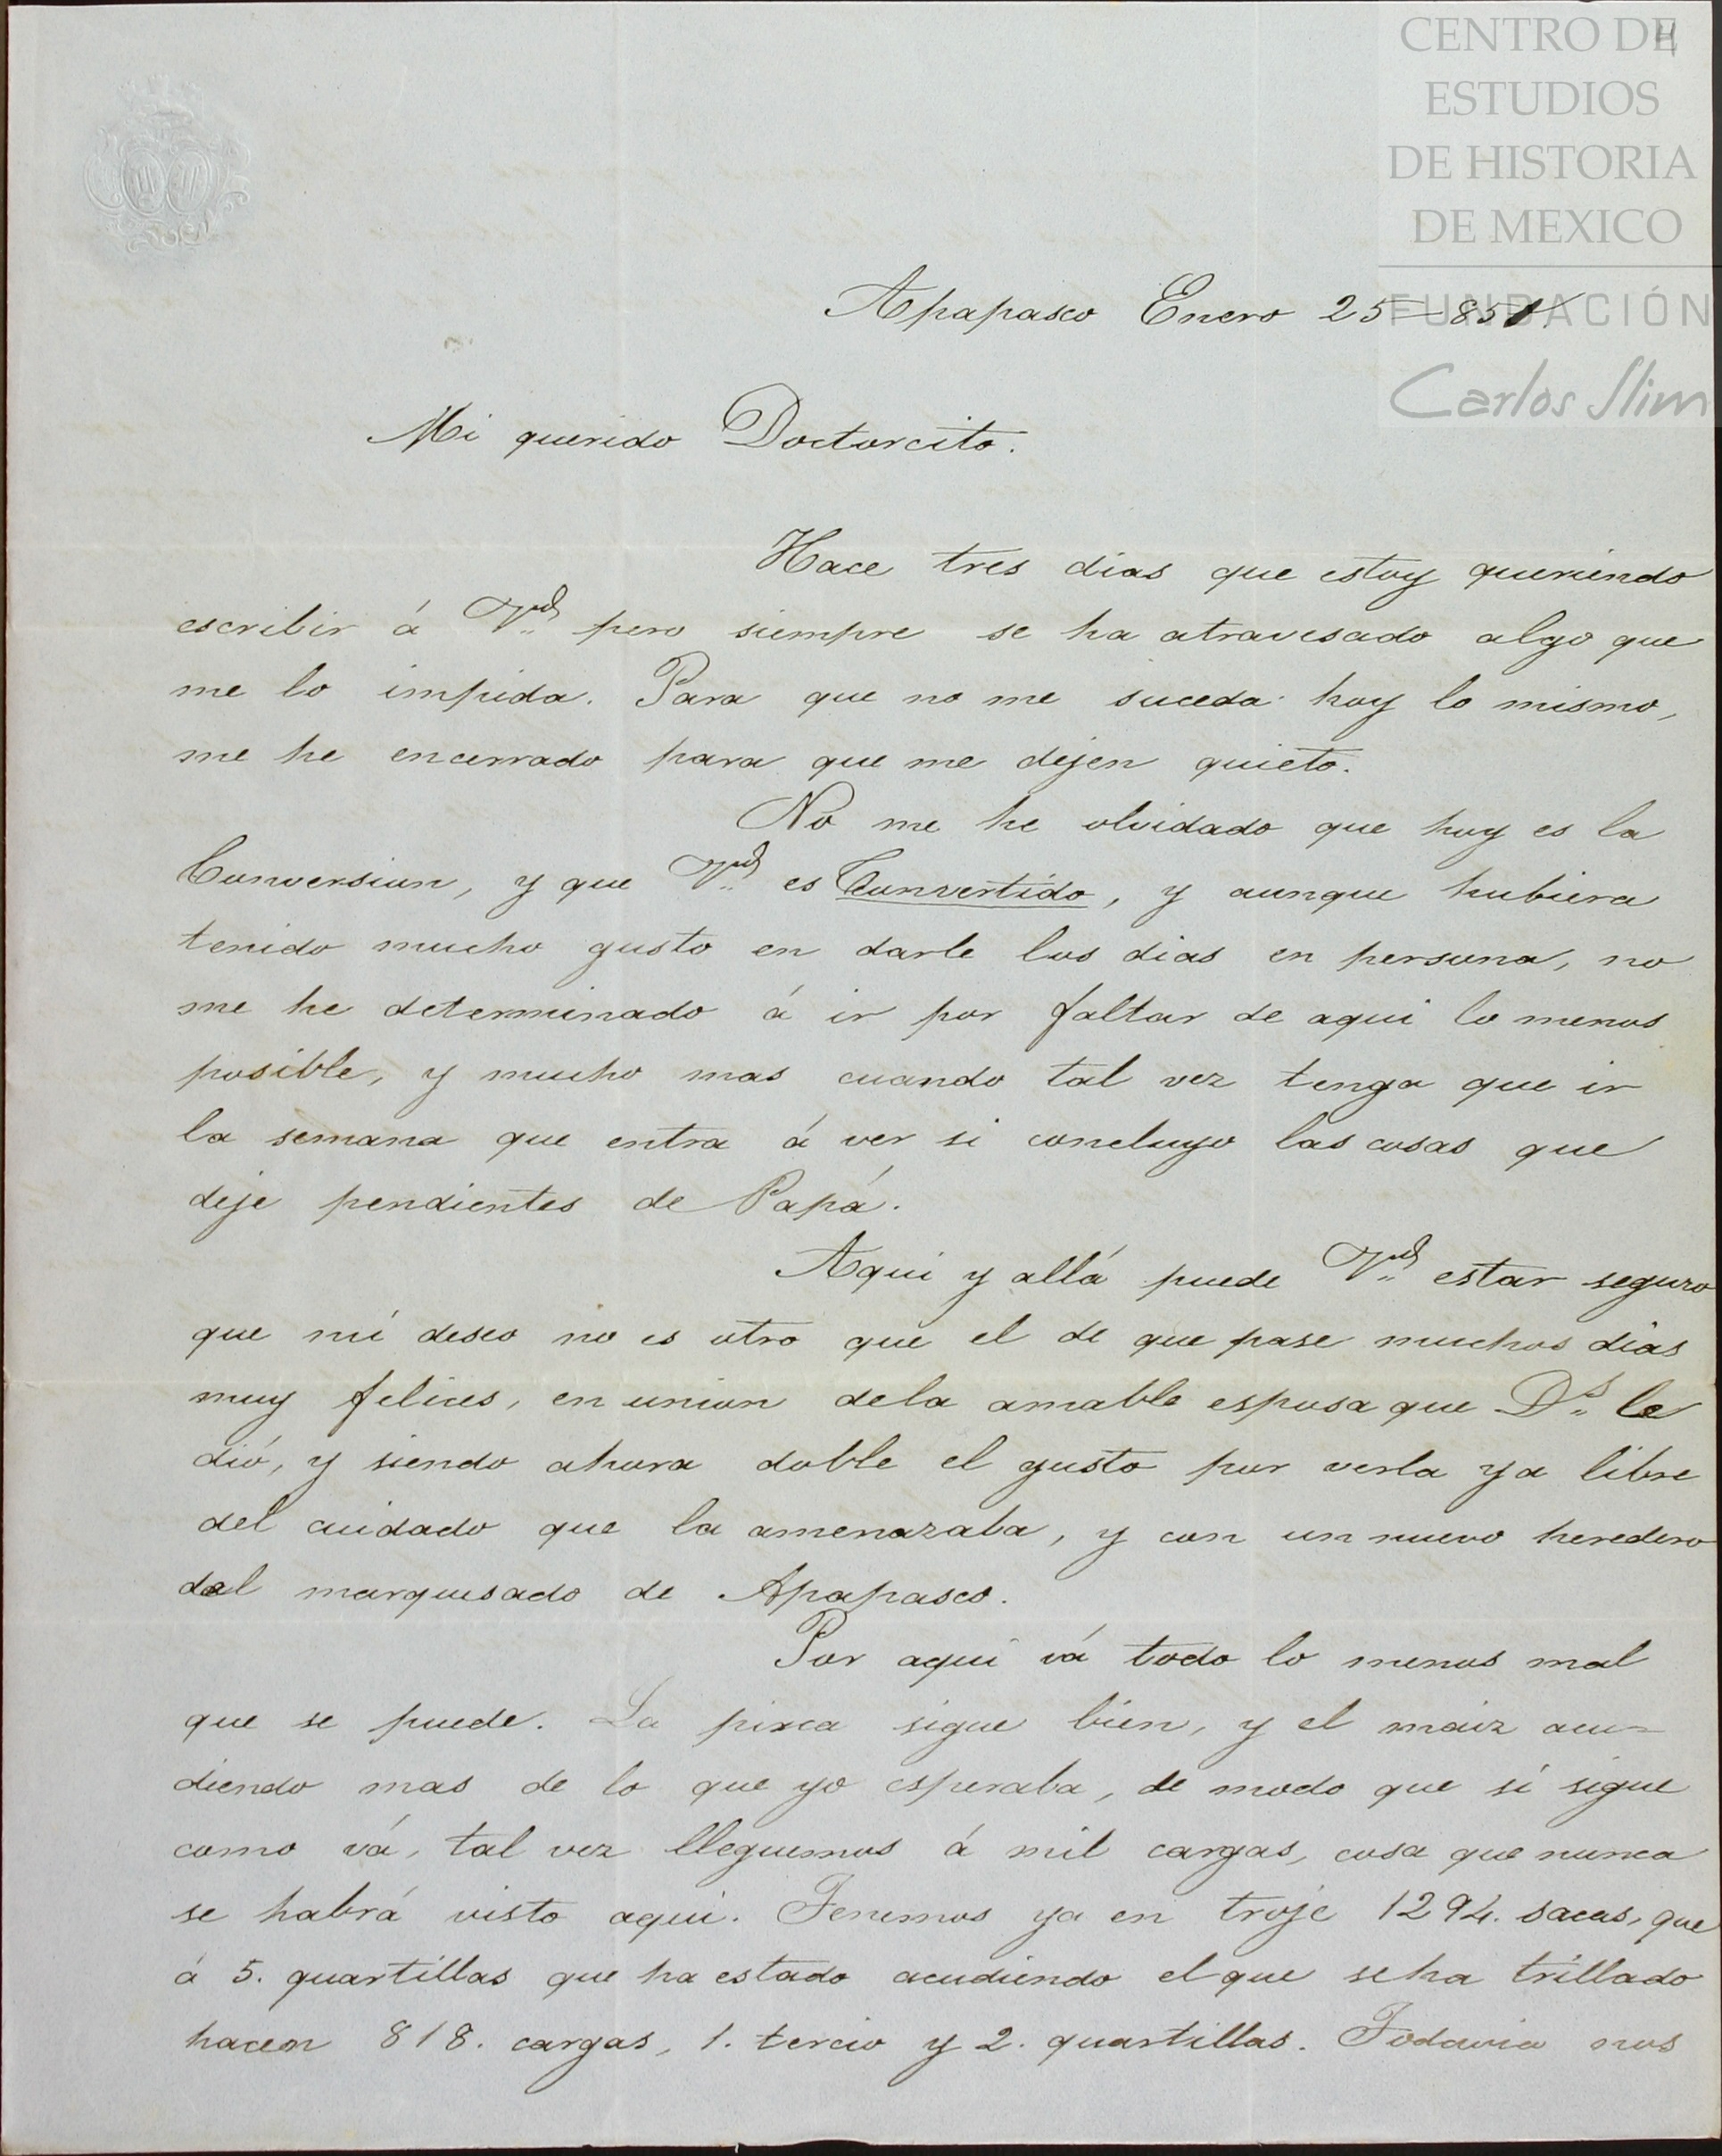 CENTRO DE
ESTUDIOS
DE HISTORIA
DE MEXICO
FUNDACIÓN
Carlos Slim
4
Apapasco Enero 25–851.
Mi querido Doctorcito.
Hace tres dias que estoy queriendo
escribir á Vd. pero siempre se ha atravesado algo que
me lo impida. Para que no me suceda hoy lo mismo,
me he encerrado para que me dejen quieto.
No me he olvidado que hoy es la
Conversion, y que Vd. es Convertido, y aunque hubiera
tenido mucho gusto en darle los dias en persona, no
me he determinado á ir por faltar de aqui lo menos
posible, y mucho mas cuando tal vez tenga que ir
la semana que entra á ver si concluyo las cosas que
deje pendientes de Papá.
Aqui y allá puede Vd. estar seguro
que mi deseo no es otro que el de que pase muchos dias
muy felices, en union dela amable esposa que Ds. le
dió, y siendo ahora doble el gusto por verla ya libre
del cuidado que la amenazaba, y con un nuevo heredero
del marquesado de Apapasco.
Por aqui vá todo lo menos mal
que se puede. La pixca sigue bien, y el maiz acu-
diendo mas de lo que yo esperaba, de modo que si sigue
como vá, tal vez lleguemos á mil cargas, cosa que nunca
se habrá visto aqui. Tenemos ya en troje 1294. sacas, que
á 5. quartillas que ha estado acudiendo el que se ha trillado
hacen 818. cargas, 1. tercio y 2. quartillas. Todavia nos